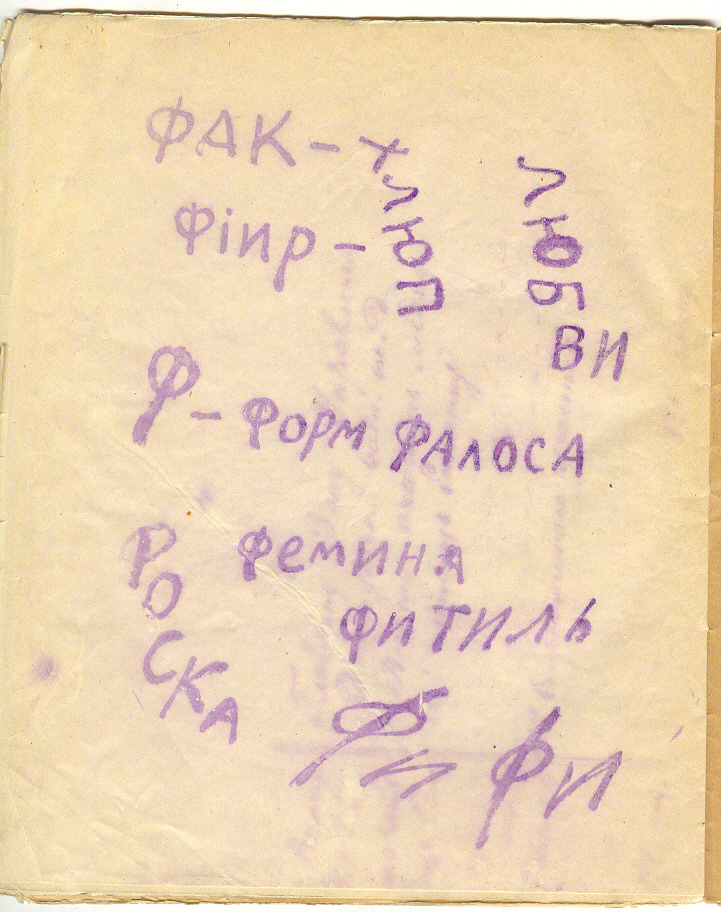 ФАК – ХЛЮП
ФіИР –
ЛЮБ
ВИ
Ф – ФОРМ ФАЛОСА
РОСКА
ФЕМИНЯ
ФИТИЛЬ
ФИ ФИ